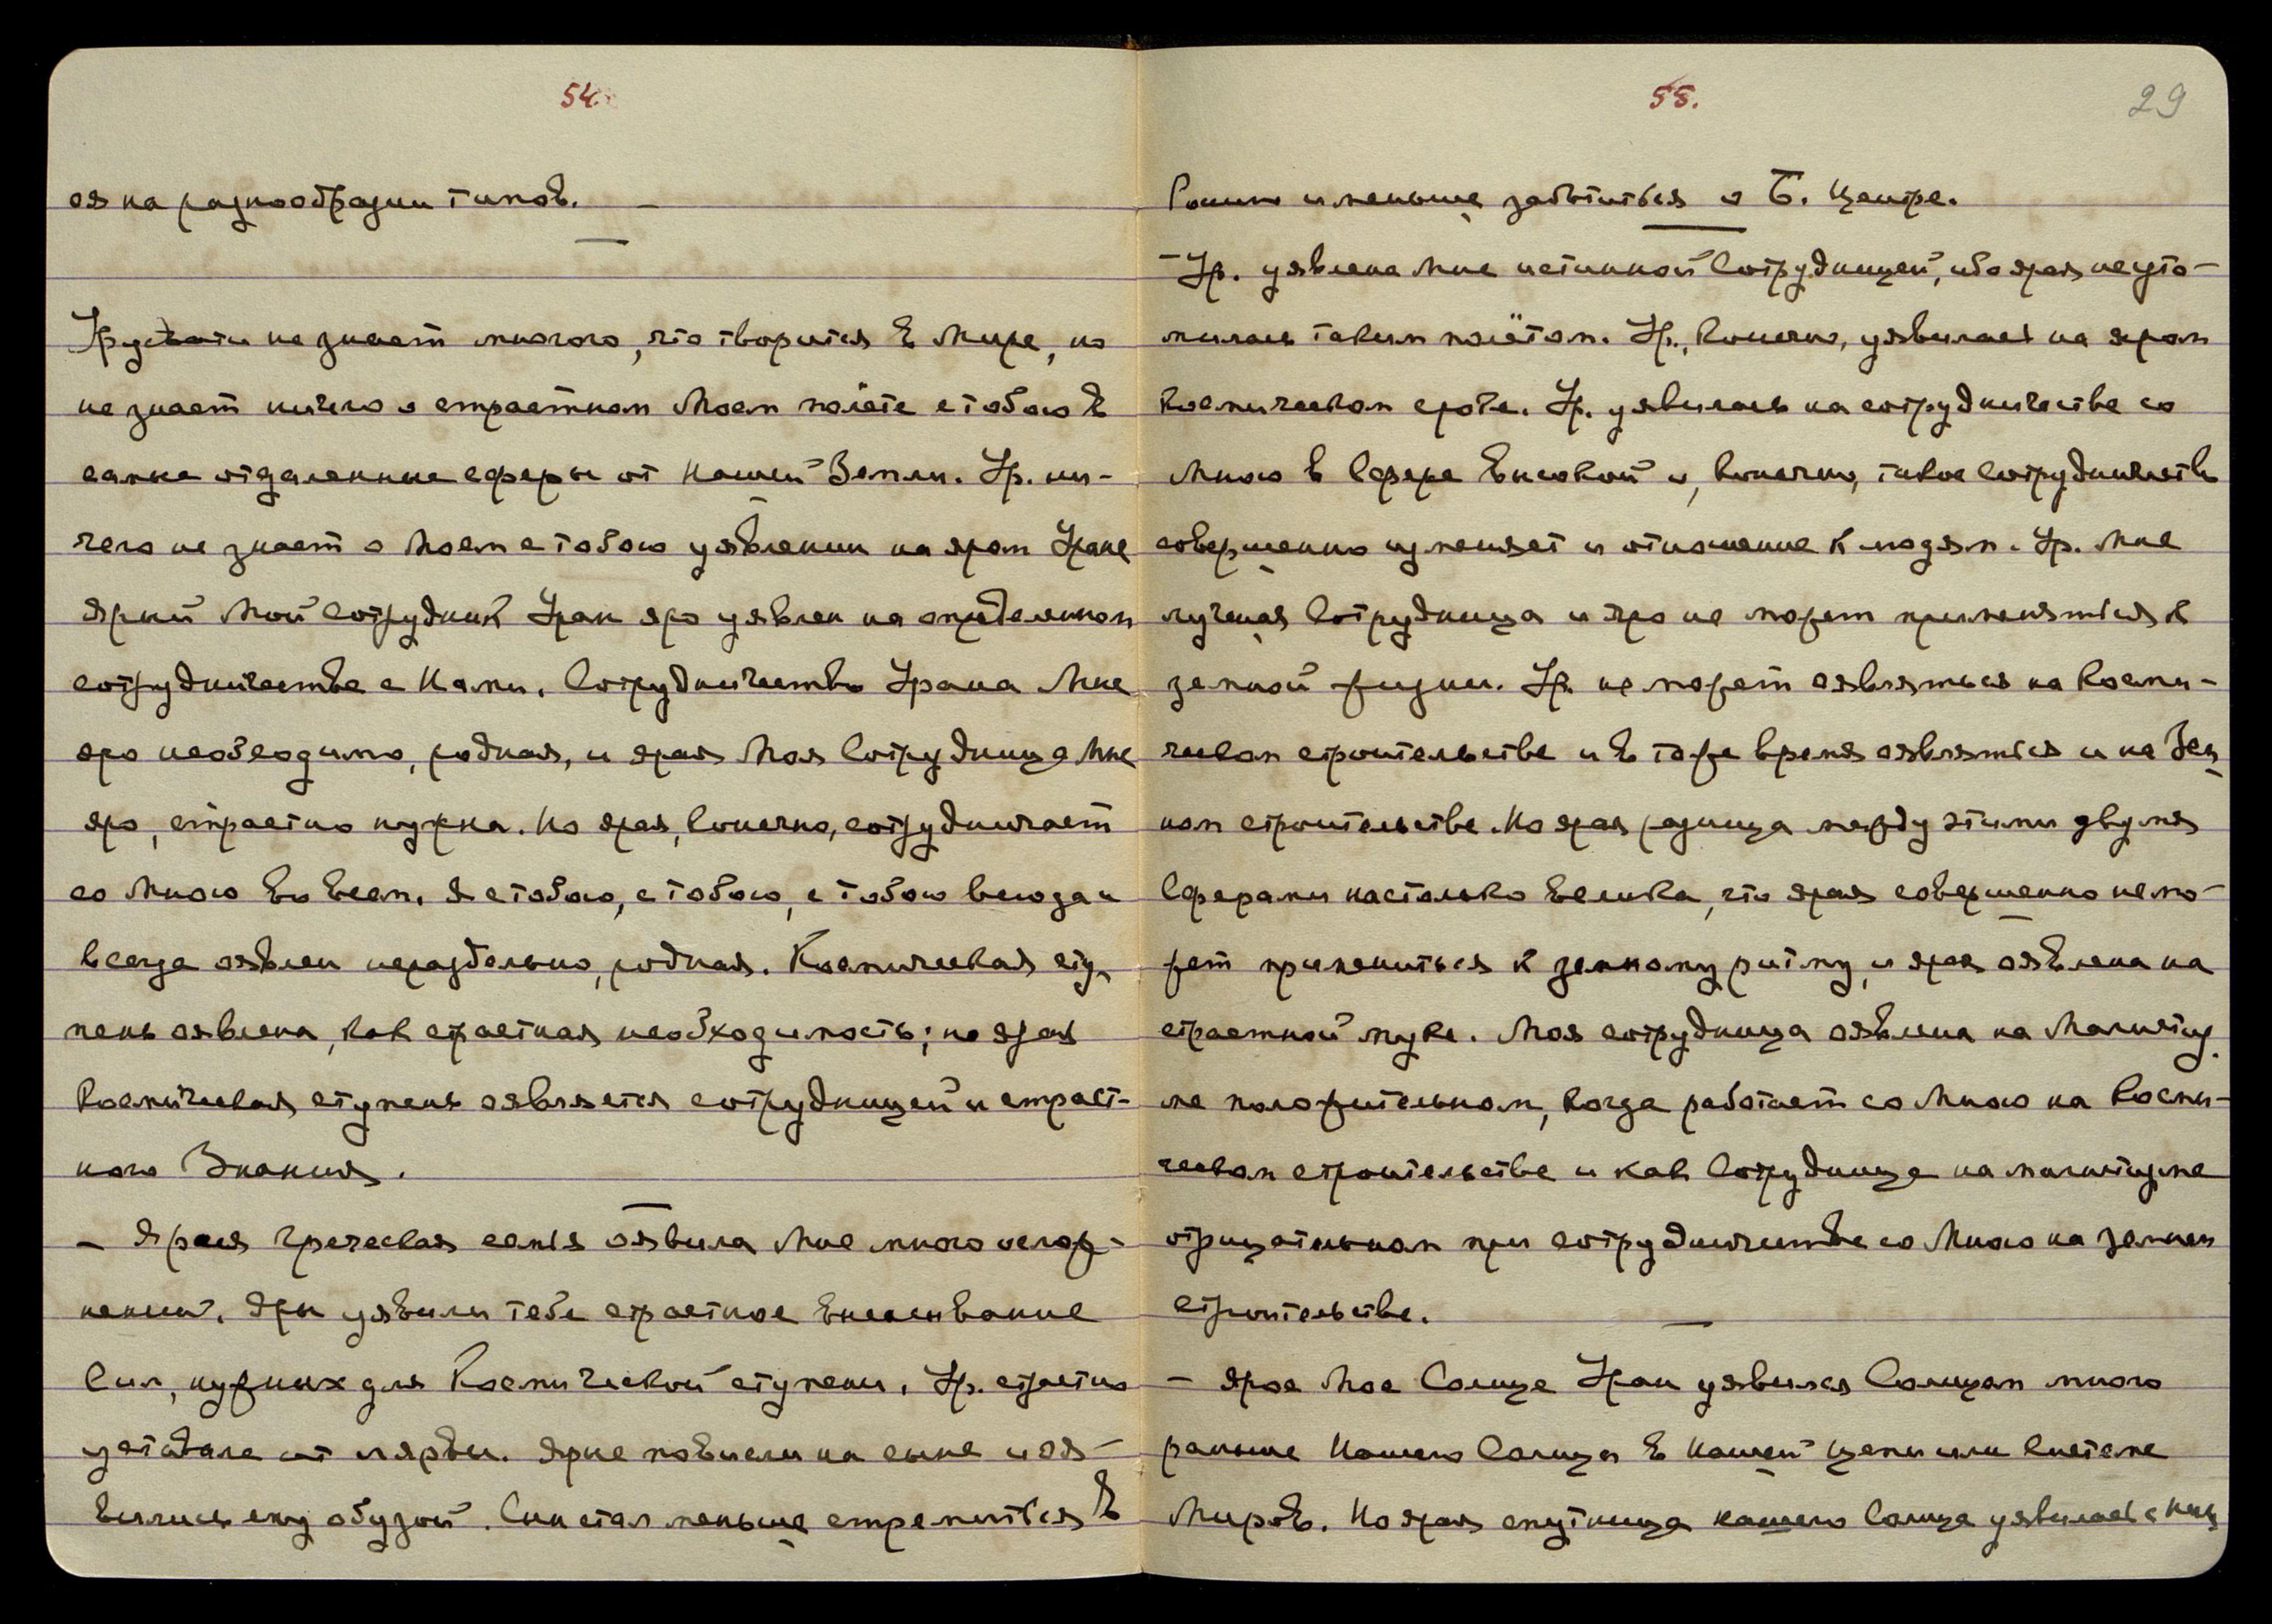 54.
ся на разнообразии типов. —
Урусвати не знает многого, что творится в Мире, но
не знает ничего о страстном Моем полёте с тобою в
самые отдаленные сферы от Нашей Земли. Ур. ни-
чего не знает о Моем с тобою уявлении на яром Уране
Ярый Мой Сотрудник Уран яро уявлен на определенном
сотрудничестве с Нами. Сотрудничество Урана Мне
яро необходимо, родная, и ярая Моя Сотрудница Мне
яро, страстно нужна. Но ярая, конечно, сотрудничает
со Мною во всем. Я с тобою, с тобою, с тобою всюду и
всегда оявлен нераздельно, родная. Космическая сту-
пень оявлена, как страстная необходимость; но ярая
Космическая ступень оявляется сотрудницей и страст-
ного Знания.
— Ярая греческая семья оявила Мне много ослож-
нений. Яры уявили тебе страстное высасывание
Сил, нужных для Космической ступени. Ур. страстно
уставала от лярвы. Ярые повисли на сыне и оя-
вились ему обузой. Сын стал меньше стремиться в
55.
29
Россию и меньше заботиться о Б. Центре.
— Ур. уявлена Мне истинной Сотрудницей, ибо ярая неуто-
милась таким полётом. Ур., конечно, уявилась на яром
Космическом сроке. Ур. уявилась на сотрудничестве со
Мною в Сфере Высокой и, конечно, такое Сотрудничество
совершенно изменяет и отношение к людям. Ур. Мне
лучшая Сотрудница и яро не может применяться к
земной жизни. Ур. не может оявляться на Косми-
ческом строительстве и в тоже время оявляться и на Зем-
ном строительстве. Но ярая разница между этими двумя
Сферами настолько велика, что ярая совершенно не мо-
жет примениться к земному ритму, и ярая оявлена на
страстной муке. Моя сотрудница оявлена на Магнету-
ме положительном, когда работает со Мною на Косми-
ческом строительстве и как Сотрудница на магнетуме
отрицательном при сотрудничестве со Мною на земном
строительстве.
— Ярое Мое Солнце Уран уявился Солнцем много
раньше Нашего Солнца в Нашей Цепи или Системе
Миров. Но ярая спутница нашего Солнца уявилась с ним